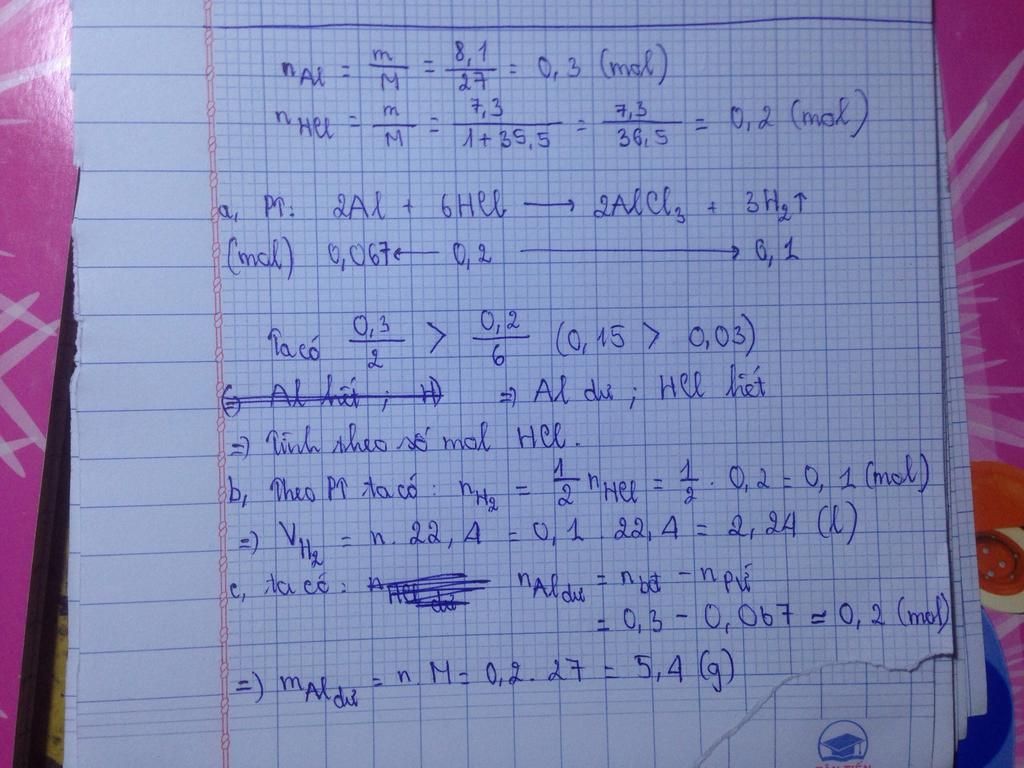 nAl = m/M = 8,1/27 = 0,3 (mol)
nHCl = m/M = 7,3/1+35,5 = 7,3/36,5 = 0,2 (mol)
a, PT: 2Al + 6HCl → 2AlCl3 + 3H2↑
(mol) 0,067 ← 0,2 → 0,1
Ta có 0,3/2 > 0,2/6 (0,15 > 0,03)
⇒ Al hết ; H) ⇒ Al dư ; HCl hết
⇒ Tính theo số mol HCl.
b, Theo PT ta có: nH2 = 1/2 nHCl = 1/2 . 0,2 = 0,1 (mol)
⇒ VH2 = n. 22,4 = 0,1 . 22,4 = 2,24 (l)
c, ta có: nAl dư = nbđ - npứ
= 0,3 - 0,067 ≈ 0,2 (mol)
⇒ mAl dư = n.M = 0,2. 27 = 5,4 (g)